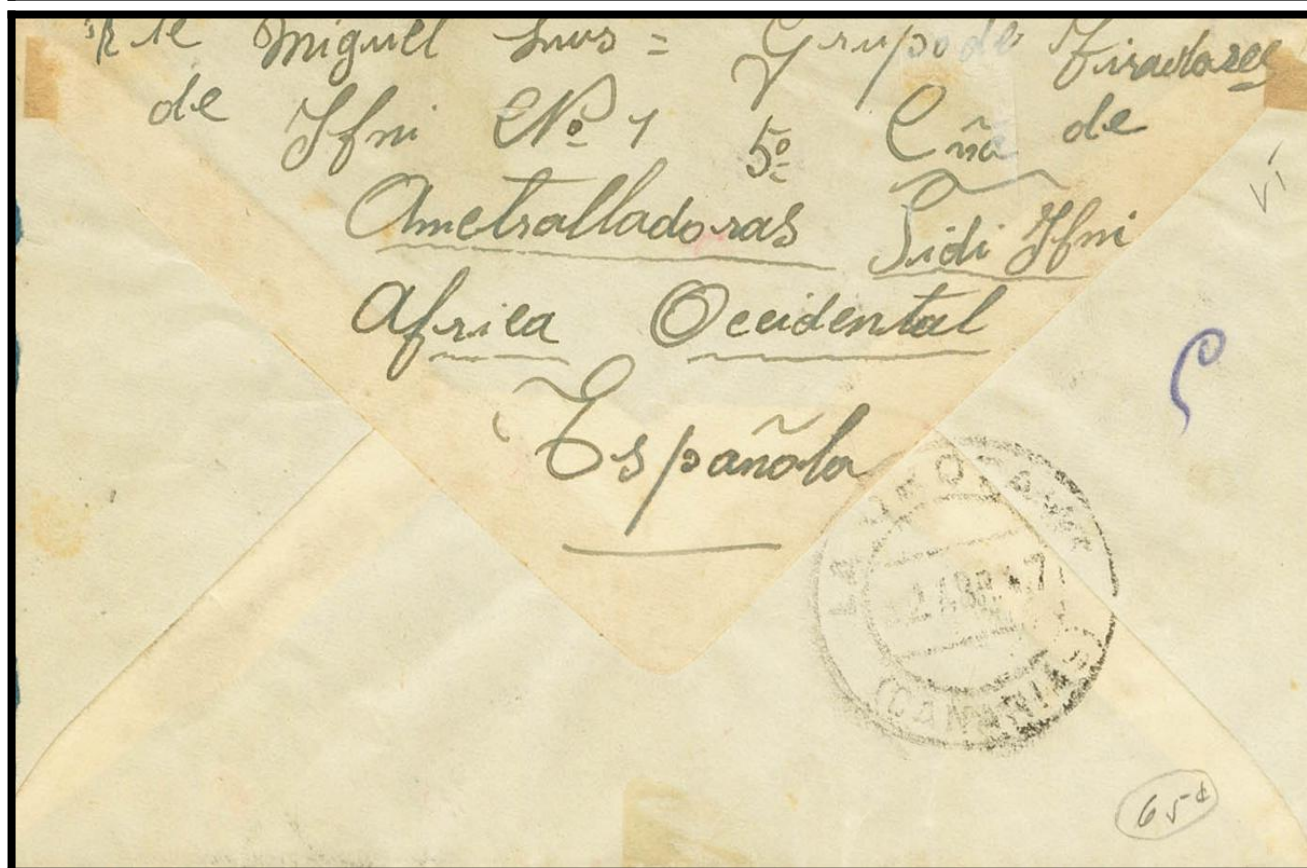 Rte Miguel = Grupo de Tiradores
de Ifni Nº 1 5º Cñia de
Ametralladoras Sidi Ifni
Africa Occidental
Española
LA OROTAVA
ABR 47
(CANARIAS)
VI
65¢